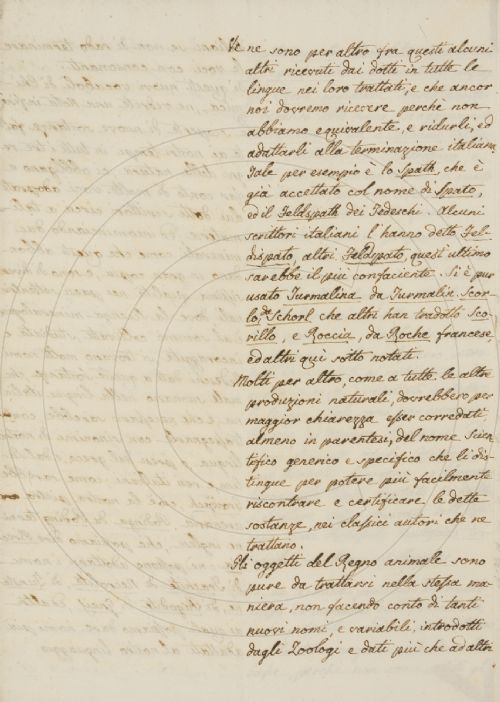 Ve ne sono per altro fra questi alcuni
altri ricevuti dai dotti in tutte le
lingue nei loro trattati, e che ancor
noi dovremo ricevere perchè non
abbiamo equivalente, e ridurli, ed
adattarli alla terminazione italiana,
Tale per esempio è lo Spath, che è
già accettato col nome di Spato,
ed il Feldspath dei Tedeschi. Alcuni
scrittori italiani l'hanno detto Fel-
dispato, altri Feldspato, quest'ultimo
sarebbe il più confaciente. Si è pur
usato Turmalina da Turmalin. Scor-
lo, da Schorl che altri han tradotto Sco-
rillo, e Roccia, da Roche francese,
ed altri quì sotto notati.
Molti per altro, come a tutte le altre
produzioni naturali, dovrebbero per
maggior chiarezza esser corredati
almeno in parentesi, del nome scien-
tefico generico e specifico che li dis-
tingue per potere più facilmente
riscontrare e certificare le dette
sostanze, nei classici autori che ne
trattano.
Gli oggetti del Regno animale sono
pure da trattarsi nella stessa ma-
niera, non facendo conto di tanti
nuovi nomi, e variabili, introdotti
dagli Zoologi e dati più che ad altri